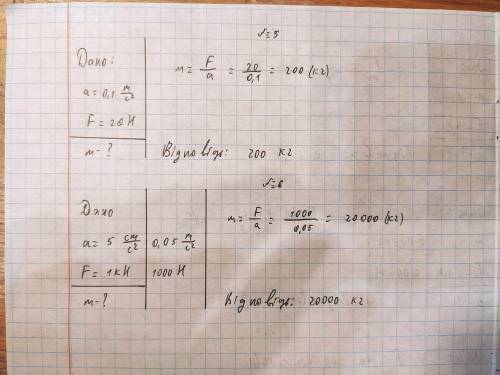 №5
Дано:
a = 0,1 м/с²
F = 20 Н
m - ?
m = F/a = 20/0,1 = 200 (кг)
Відповідь: 200 кг
№6
Дано
a = 5 см/с² 0,05 м/с²
F = 1кН 1000 Н
m - ?
m = F/a = 1000/0,05 = 20000 (кг)
Відповідь: 20000 кг